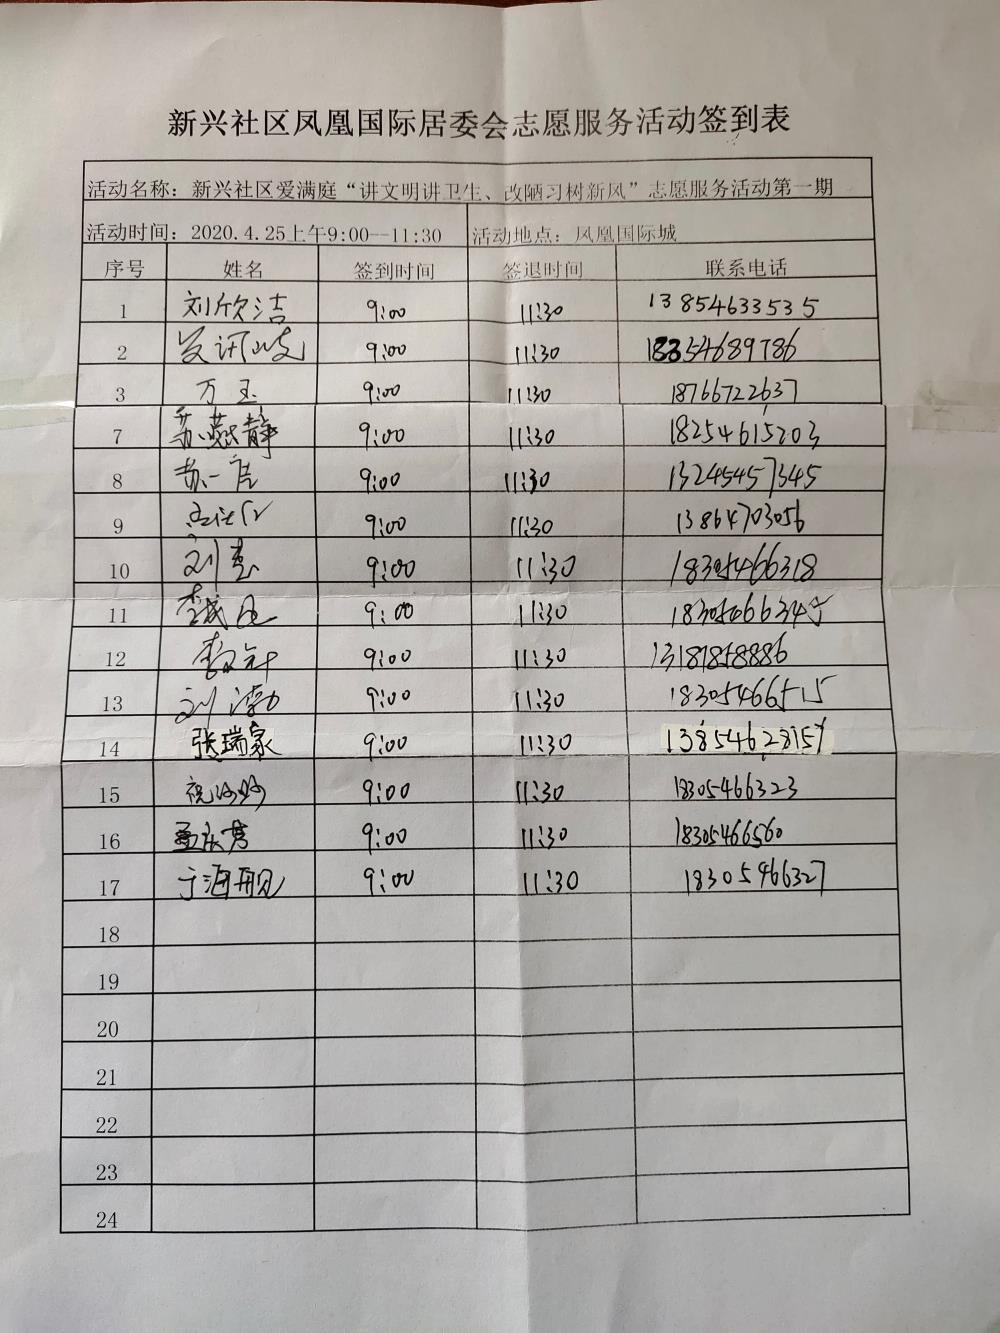 新兴社区凤凰国际居委会志愿服务活动签到表
活动名称：新兴社区爱满庭“讲文明讲卫生、改陋习树新风”志愿服务活动第一期
活动时间：2020.4.25上午9:00--11:30 活动地点：凤凰国际城
序号 姓名 签到时间 签退时间 联系电话
1 刘欣洁 9:00 11:30 13854633535
2 9:00 11:30 18354689786
3 万玉 9:00 11:30 18766722637
7 苏燕静 9:00 11:30 18254615203
8 苏一 9:00 11:30 13245457345
9 9:00 11:30 13864703056
10 刘 9:00 11:30 18305466318
11 李 9:00 11:30
12 李 9:00 11:30 13181858886
13 刘 9:00 11:30 18305466515
14 张瑞家 9:00 11:30 13854628157
15 9:00 11:30 18305466323
16 9:00 11:30 18305466560
17 于海 9:00 11:30 18305466327
18
19
20
21
22
23
24